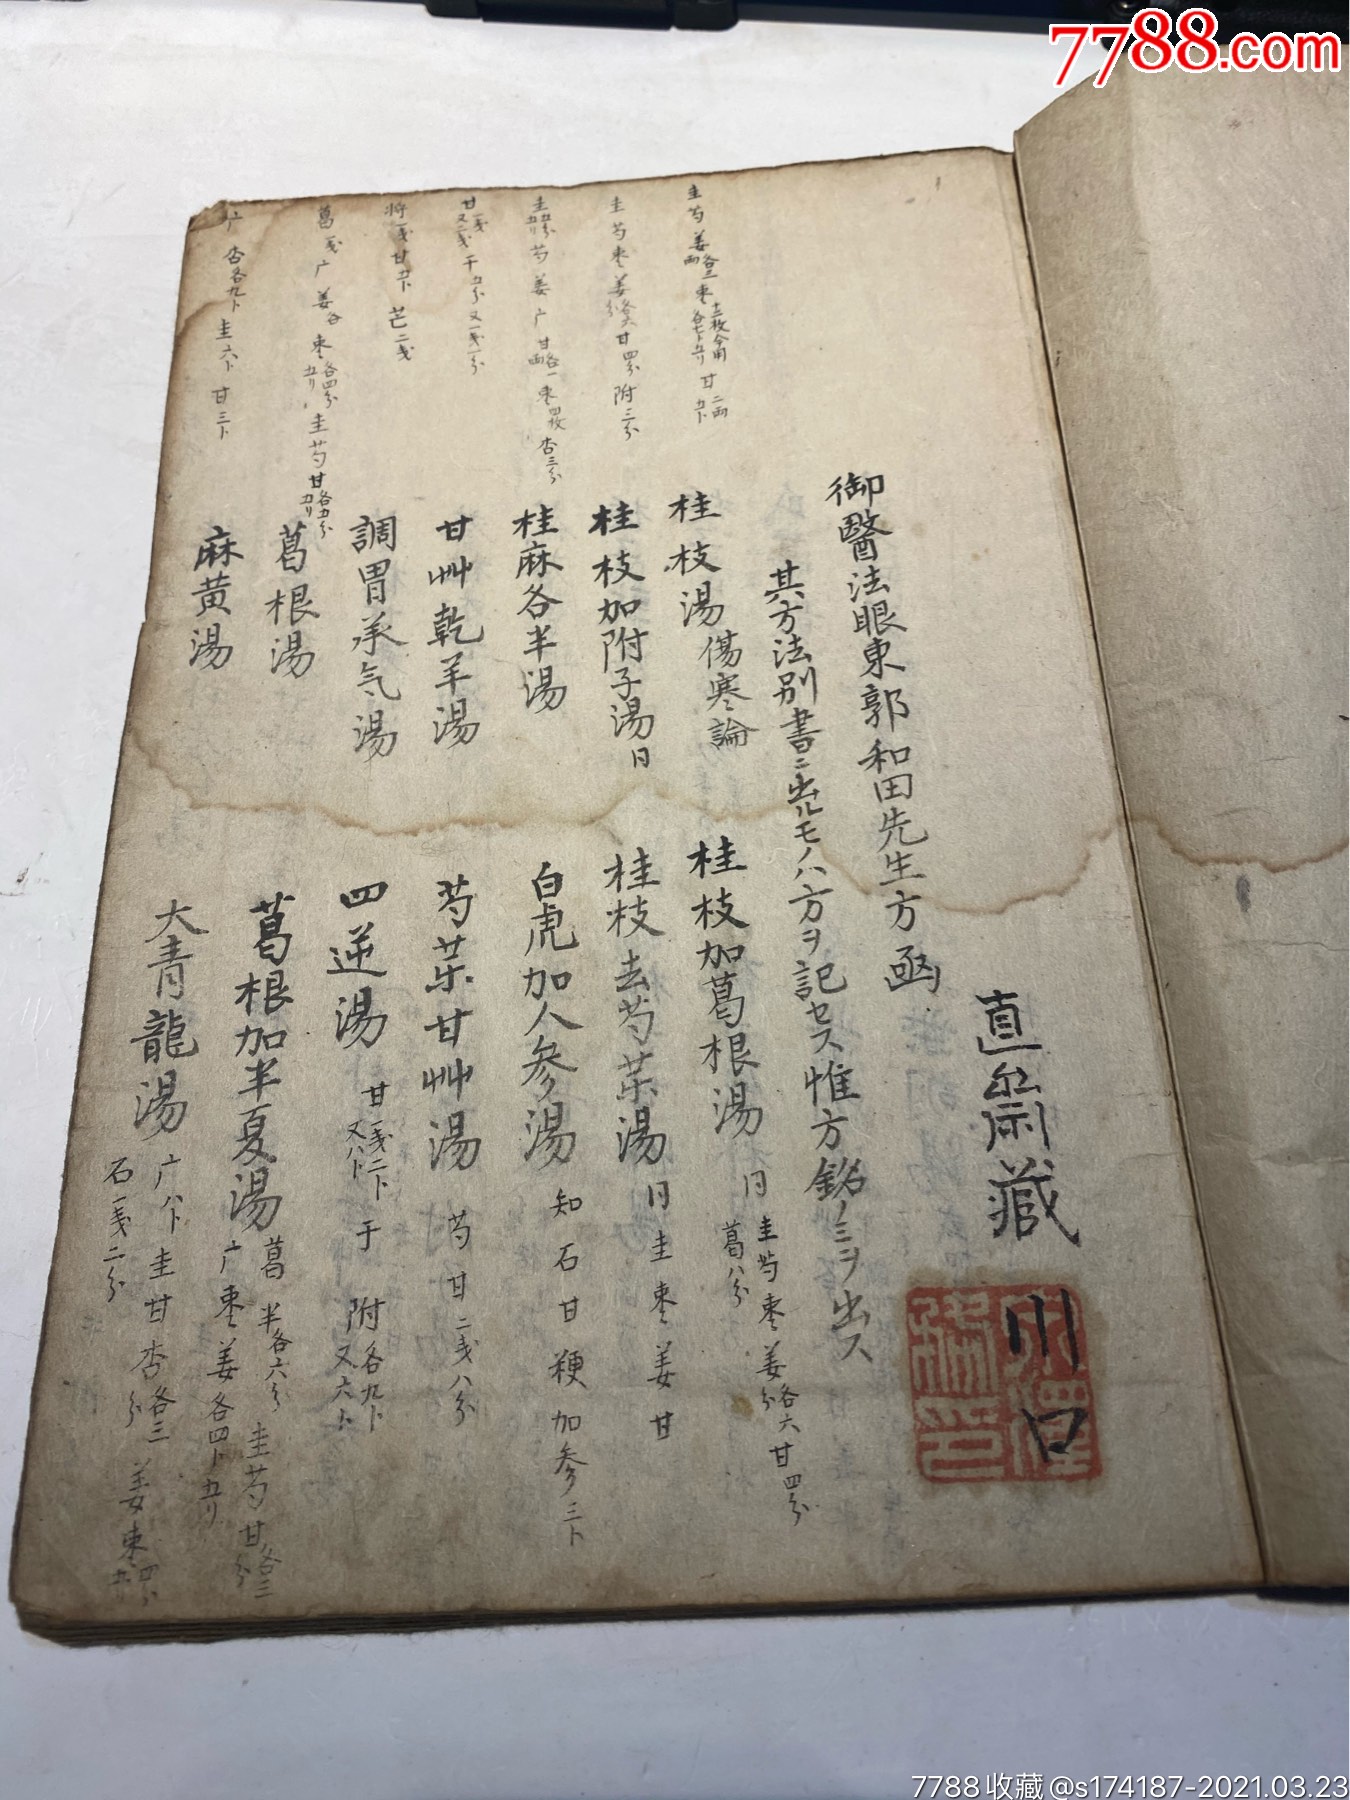 7788.com
直齋藏
川口
御醫法眼東郭和田先生方函
其方法別書ニ出ルモノハ方ヲ記セス惟方銘ノミヲ出ス
圭芍姜各二两枣十二枚今用各七卜五リ甘二两五卜
桂枝湯傷寒論
桂枝加葛根湯 日 圭芍枣姜各六分甘四分葛八分
圭芍枣姜各六分甘四分附三分
桂枝加附子湯日
桂枝去芍薬湯 日 圭枣姜甘
芍姜广甘各一两枣四枚杏三分
桂麻各半湯
白虎加人参湯 知石甘粳加参三卜
甘艸乾羊湯
芍薬甘艸湯 芍甘二戋八分
将一戋甘五卜芒二戋
調胃承気湯
四逆湯 甘一戋二卜又八卜于附各九卜又六卜
葛一戋广姜各枣各四分五リ圭芍甘各五分五リ
葛根湯
葛根加半夏湯 葛半各六分圭芍甘各三分广枣姜各四卜五リ
广杏各九卜圭六卜甘三卜
麻黄湯
大青龍湯 广八卜圭甘杏各三分姜枣四分五リ石一戋二分
7788收藏@s174187-2021.03.23